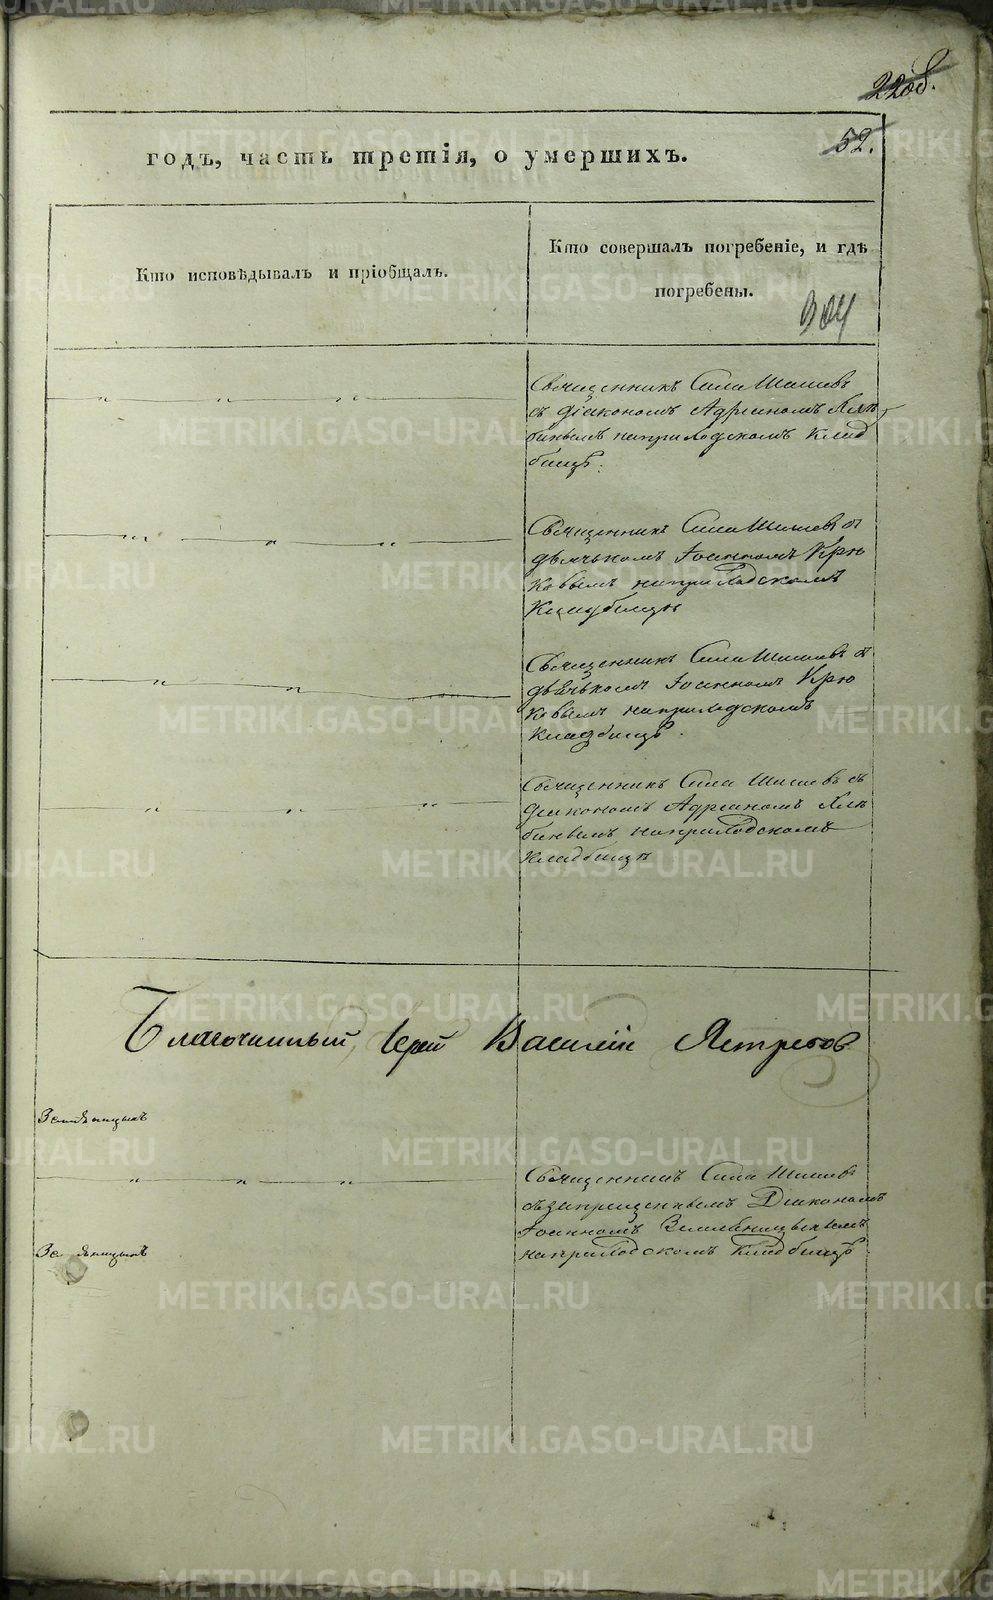 2208.
52.
годъ, часть третія, о умершихъ.
Кто исповѣдывалъ и пріобщалъ.
Кто совершалъ погребеніе, и гдѣ
погребены.
304
Священникъ Сила Шишевъ
съ Діакономъ Адріаномъ Хлѣ
бинымъ наприходскомъ Клад
бищѣ.
Священникъ Сила Шишевъ съ
дьячькомъ Іоанномъ Крю
ковымъ наприходскомъ
Кладбищѣ
Священникъ Сила Шишевъ съ
дьячькомъ Іоанномъ Крю
ковымъ наприходскомъ
Кладбищѣ.
Священникъ Сила Шишевъ съ
Діакономъ Адріаномъ Хлѣ
бинымъ наприходскомъ
Кладбищѣ
Благочинный, Іерей Василій Ястребов
Священникъ Сила Шишевъ
съ запрещеннымъ Діакономъ
Іоанномъ
наприходскомъ Кладбищѣ
METRIKI.GASO-URAL.RU